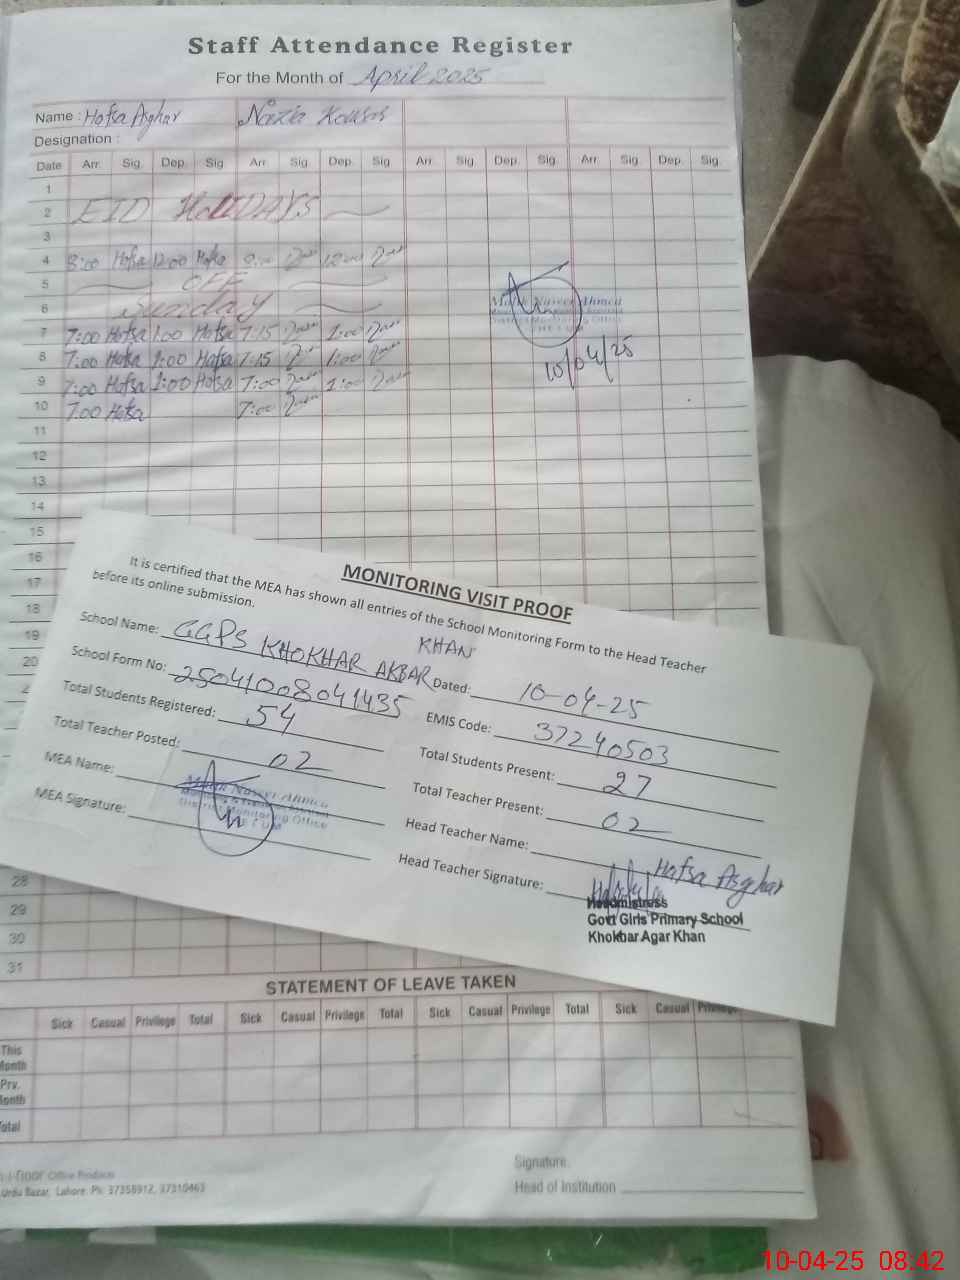 Staff Attendance Register
For the Month of April 2025
Name : Hafsa Asghar Nazia Kousar
Designation :
Date Arr. Sig. Dep. Sig. Arr. Sig. Dep. Sig. Arr. Sig. Dep. Sig. Arr. Sig. Dep. Sig.
1
2 EID HoLIDAYS
3
4 8:00 Hafsa 12:00 Hafsa 12:00
5 OFF
6 Sunday
7 7:00 Hafsa 1:00 Hafsa 7:15 1:00
8 7:00 Hafsa 1:00 Hafsa 7:15 1:00
9 7:00 Hafsa 1:00 Hafsa 7:00 1:00
10 7:00 Hafsa 7:00
Malik Naveer Ahmed
District Monitoring Office
JHELUM
10/04/25
11
12
13
14
15
16
17
18
19
20
MONITORING VISIT PROOF
It is certified that the MEA has shown all entries of the School Monitoring Form to the Head Teacher
before its online submission.
School Name: GGPS KHOKHAR AKBAR KHAN Dated: 10-04-25
School Form No: 25041008041435 EMIS Code: 37240503
Total Students Registered: 54 Total Students Present: 27
Total Teacher Posted: 02 Total Teacher Present: 02
MEA Name: Head Teacher Name: Hafsa Asghar
MEA Signature: Head Teacher Signature:
Malik Naveer Ahmed
Monitoring & Evaluation Assistant
District Monitoring Office
JHELUM
Headmistress
Govt Girls Primary School
Khokhar Agar Khan
28
29
30
31
STATEMENT OF LEAVE TAKEN
Sick Casual Privilege Total Sick Casual Privilege Total Sick Casual Privilege Total Sick Casual Privilege
This Month
Prv. Month
Total
Office Products
Urdu Bazar, Lahore. Ph: 37358912, 37310463
Signature.
Head of Institution
10-04-25 08:42